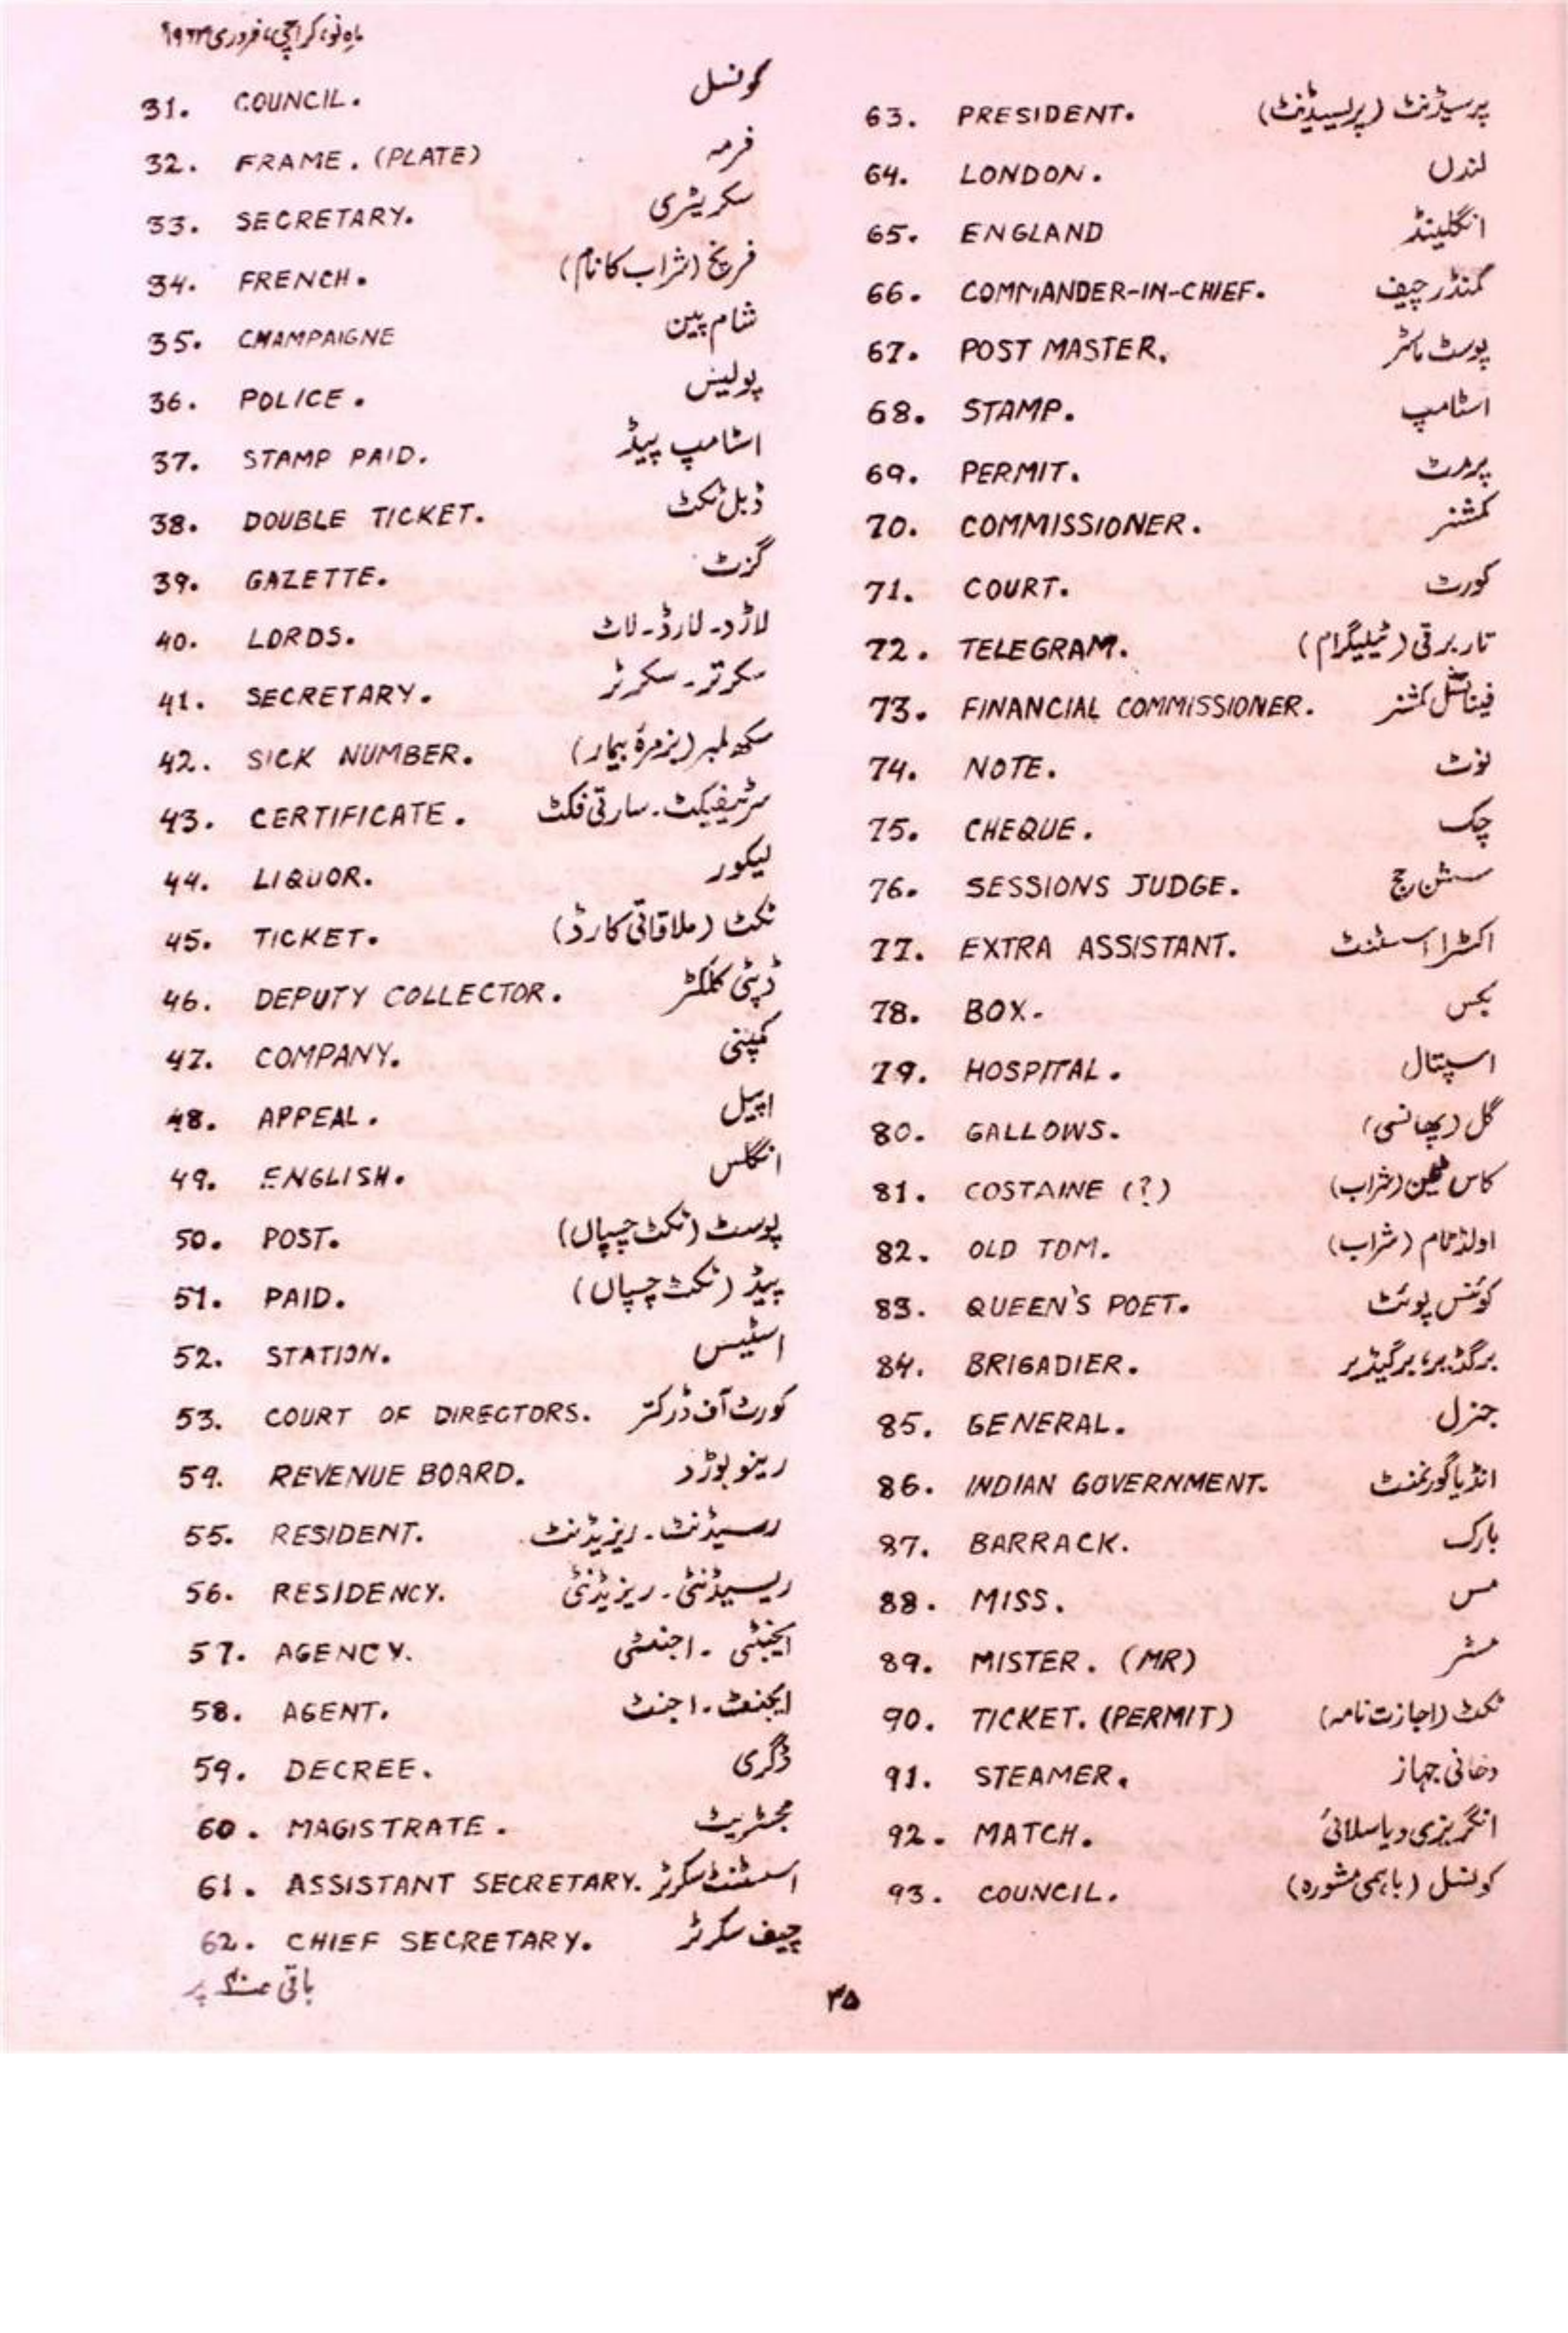 ماہِ نو، کراچی، فروری ۱۹۶۳
31. COUNCIL. کونسل
32. FRAME. (PLATE) فرمہ
33. SECRETARY. سکریٹری
34. FRENCH. فرنچ (شراب کا نام)
35. CHAMPAIGNE شام پین
36. POLICE. پولیس
37. STAMP PAID. اسٹامپ پیڈ
38. DOUBLE TICKET. ڈبل ٹکٹ
39. GAZETTE. گزٹ
40. LORDS. لاڑد۔ لارڈ۔ لاٹ
41. SECRETARY. سکرتر۔ سکرٹر
42. SICK NUMBER. سکھ لمبر (بزمرۂ بیمار)
43. CERTIFICATE. سرٹیفیکٹ۔ سارتی فکٹ
44. LIQUOR. لیکور
45. TICKET. ٹکٹ (ملاقاتی کارڈ)
46. DEPUTY COLLECTOR. ڈپٹی کلکٹر
47. COMPANY. کمپنی
48. APPEAL. اپیل
49. ENGLISH. انگلس
50. POST. پوسٹ (ٹکٹ چسپاں)
51. PAID. پیڈ (ٹکٹ چسپاں)
52. STATION. اسٹیس
53. COURT OF DIRECTORS. کورٹ آف ڈرکتر
54. REVENUE BOARD. رینو بوڑد
55. RESIDENT. رسیڈنٹ۔ ریزیڈنٹ
56. RESIDENCY. ریسیڈنٹی۔ ریزیڈنٹی
57. AGENCY. ایجنٹی۔ اجنٹی
58. AGENT. ایجنٹ۔ اجنٹ
59. DECREE. ڈگری
60. MAGISTRATE. مجسٹریٹ
61. ASSISTANT SECRETARY. اسسٹنٹ سکرٹر
62. CHIEF SECRETARY. چیف سکرٹر
باقی پر
63. PRESIDENT. پرسیڈنٹ (پریسیڈینٹ)
64. LONDON. لندن
65. ENGLAND انگلینڈ
66. COMMANDER-IN-CHIEF. کمنڈر چیف
67. POST MASTER. پوسٹ ماسٹر
68. STAMP. اسٹامپ
69. PERMIT. پرمٹ
70. COMMISSIONER. کمشنر
71. COURT. کورٹ
72. TELEGRAM. تار برقی (ٹیلیگرام)
73. FINANCIAL COMMISSIONER. فینانشل کمشنر
74. NOTE. نوٹ
75. CHEQUE. چک
76. SESSIONS JUDGE. سشن جج
77. EXTRA ASSISTANT. اکسٹرا اسسٹنٹ
78. BOX. بکس
79. HOSPITAL. اسپتال
80. GALLOWS. گل (پھانسی)
81. COSTAINE (?) کاس ٹیلین (شراب)
82. OLD TOM. اولڈ ٹام (شراب)
83. QUEEN'S POET. کوئنس پوئٹ
84. BRIGADIER. برگڈیر، برگیڈیر
85. GENERAL. جنرل
86. INDIAN GOVERNMENT. انڈیا گورنمنٹ
87. BARRACK. بارک
88. MISS. مس
89. MISTER. (MR) مسٹر
90. TICKET. (PERMIT) ٹکٹ (اجازت نامہ)
91. STEAMER. دخانی جہاز
92. MATCH. انگریزی دیاسلائی
93. COUNCIL. کونسل (باہمی مشورہ)
۳۵